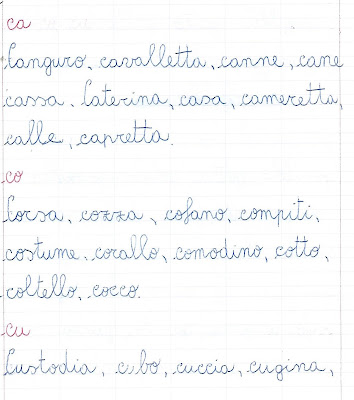 ca
Canguro, cavalletta, canne, cane
cassa, Caterina, casa, cameretta,
calle, capretta.
co
Corsa, cozza, cofano, compiti,
costume, corallo, comodino, cotto,
coltello, cocco.
cu
Custodia, cubo, cuccia, cugina,